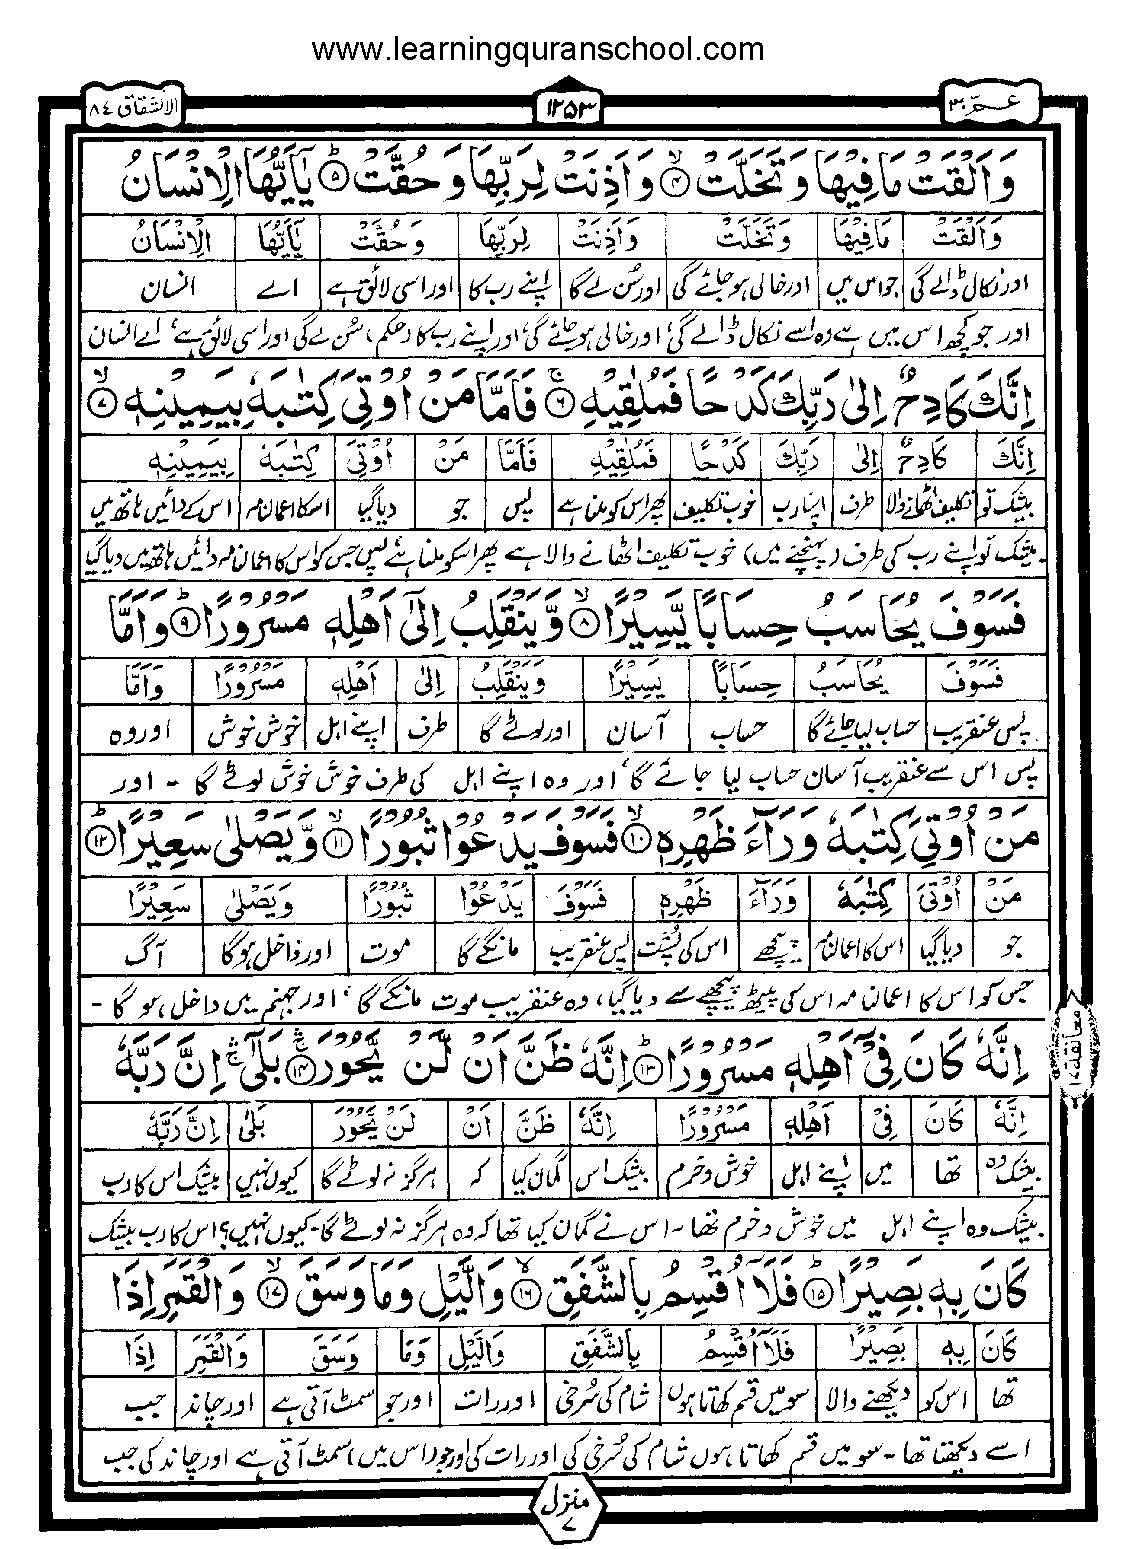 www.learningquranschool.com
عم ٣٠
١٢٥٣
الانشقاق ٨٤
وَاَلْقَتْ مَا فِيْهَا وَتَخَلَّتْ ۙ﴿۴﴾ وَاَذِنَتْ لِرَبِّهَا وَحُقَّتْ ؕ﴿۵﴾ يٰۤاَيُّهَا الْاِنْسَانُ
وَاَلْقَتْ مَا فِيْهَا وَتَخَلَّتْ وَاَذِنَتْ لِرَبِّهَا وَحُقَّتْ يٰۤاَيُّهَا الْاِنْسَانُ
اور نکال ڈالے گی جو اس میں اور خالی ہو جائے گی اور سُن لے گا اپنے رب کا اور اسی لائق ہے اے انسان
اور جو کچھ اس میں ہے وہ اسے نکال ڈالے گی، اور خالی ہو جائے گی، اور اپنے رب کا (حکم) سُن لے گی اور اسی لائق ہے، اے انسان
اِنَّكَ كَادِحٌ اِلٰى رَبِّكَ كَدْحًا فَمُلٰقِيْهِ ۚ﴿۶﴾ فَاَمَّا مَنْ اُوْتِيَ كِتٰبَهٗ بِيَمِيْنِهٖ ۙ﴿۷﴾
اِنَّكَ كَادِحٌ اِلٰى رَبِّكَ كَدْحًا فَمُلٰقِيْهِ فَاَمَّا مَنْ اُوْتِيَ كِتٰبَهٗ بِيَمِيْنِهٖ
بیشک تو تکلیف اٹھانے والا طرف اپنا رب خوب تکلیف پھر اس کو ملنا ہے پس جو دیا گیا اسکا اعمالنامہ اس کے دائیں ہاتھ میں
بیشک تو اپنے رب کی طرف (پہنچنے میں) خوب تکلیف اٹھانے والا ہے پھر اسکو ملنا ہے، پس جس کو اس کا اعمالنامہ دائیں ہاتھ میں دیا گیا
فَسَوْفَ يُحَاسَبُ حِسَابًا يَّسِيْرًا ۙ﴿۸﴾ وَّيَنْقَلِبُ اِلٰۤى اَهْلِهٖ مَسْرُوْرًا ؕ﴿۹﴾ وَاَمَّا
فَسَوْفَ يُحَاسَبُ حِسَابًا يَسِيْرًا وَيَنْقَلِبُ اِلٰى اَهْلِهٖ مَسْرُوْرًا وَاَمَّا
پس عنقریب حساب لیا جائے گا حساب آسان اور لوٹے گا طرف اپنے اہل خوش خوش اور وہ
پس اس سے عنقریب آسان حساب لیا جائے گا، اور وہ اپنے اہل کی طرف خوش خوش لوٹے گا - اور
مَنْ اُوْتِيَ كِتٰبَهٗ وَرَآءَ ظَهْرِهٖ ۙ﴿۱۰﴾ فَسَوْفَ يَدْعُوْا ثُبُوْرًا ۙ﴿۱۱﴾ وَّيَصْلٰى سَعِيْرًا ؕ﴿۱۲﴾
مَنْ اُوْتِيَ كِتٰبَهٗ وَرَآءَ ظَهْرِهٖ فَسَوْفَ يَدْعُوْا ثُبُوْرًا وَيَصْلٰى سَعِيْرًا
جو دیا گیا اس کا اعمالنامہ پیچھے اس کی پُشت پس عنقریب مانگے گا موت اور داخل ہوگا آگ
جس کو اس کا اعمالنامہ اس کی پیٹھ پیچھے سے دیا گیا، وہ عنقریب موت مانگے گا، اور جہنم میں داخل ہو گا -
اِنَّهٗ كَانَ فِيْۤ اَهْلِهٖ مَسْرُوْرًا ؕ﴿۱۳﴾ اِنَّهٗ ظَنَّ اَنْ لَّنْ يَّحُوْرَ ۚۛ﴿۱۴﴾ بَلٰۤى ۚۛ اِنَّ رَبَّهٗ
اِنَّهٗ كَانَ فِيْ اَهْلِهٖ مَسْرُوْرًا اِنَّهٗ ظَنَّ اَنْ لَنْ يَحُوْرَ بَلٰى اِنَّ رَبَّهٗ
بیشک وہ تھا میں اپنے اہل خوش و خرم بیشک اس گمان کیا کہ ہرگز نہ لوٹے گا کیوں نہیں بیشک اس کا رب
بیشک وہ اپنے اہل میں خوش و خرم تھا - اس نے گمان کیا تھا کہ وہ ہرگز نہ لوٹے گا - کیوں نہیں؟ اس کا رب بیشک
كَانَ بِهٖ بَصِيْرًا ؕ﴿۱۵﴾ فَلَاۤ اُقْسِمُ بِالشَّفَقِ ۙ﴿۱۶﴾ وَالَّيْلِ وَمَا وَسَقَ ۙ﴿۱۷﴾ وَالْقَمَرِ اِذَا
كَانَ بِهٖ بَصِيْرًا فَلَاۤ اُقْسِمُ بِالشَّفَقِ وَالَّيْلِ وَمَا وَسَقَ وَالْقَمَرِ اِذَا
تھا اس کو دیکھنے والا سو میں قسم کھاتا ہوں شام کی سُرخی اور رات اور جو سمٹ آتی ہے اور چاند جب
اسے دیکھتا تھا - سو میں قسم کھاتا ہوں شام کی سُرخی کی اور رات کی اور جو (اس میں) سمٹ آتی ہے اور چاند کی جب
معانقة ١٨
منزل ٧